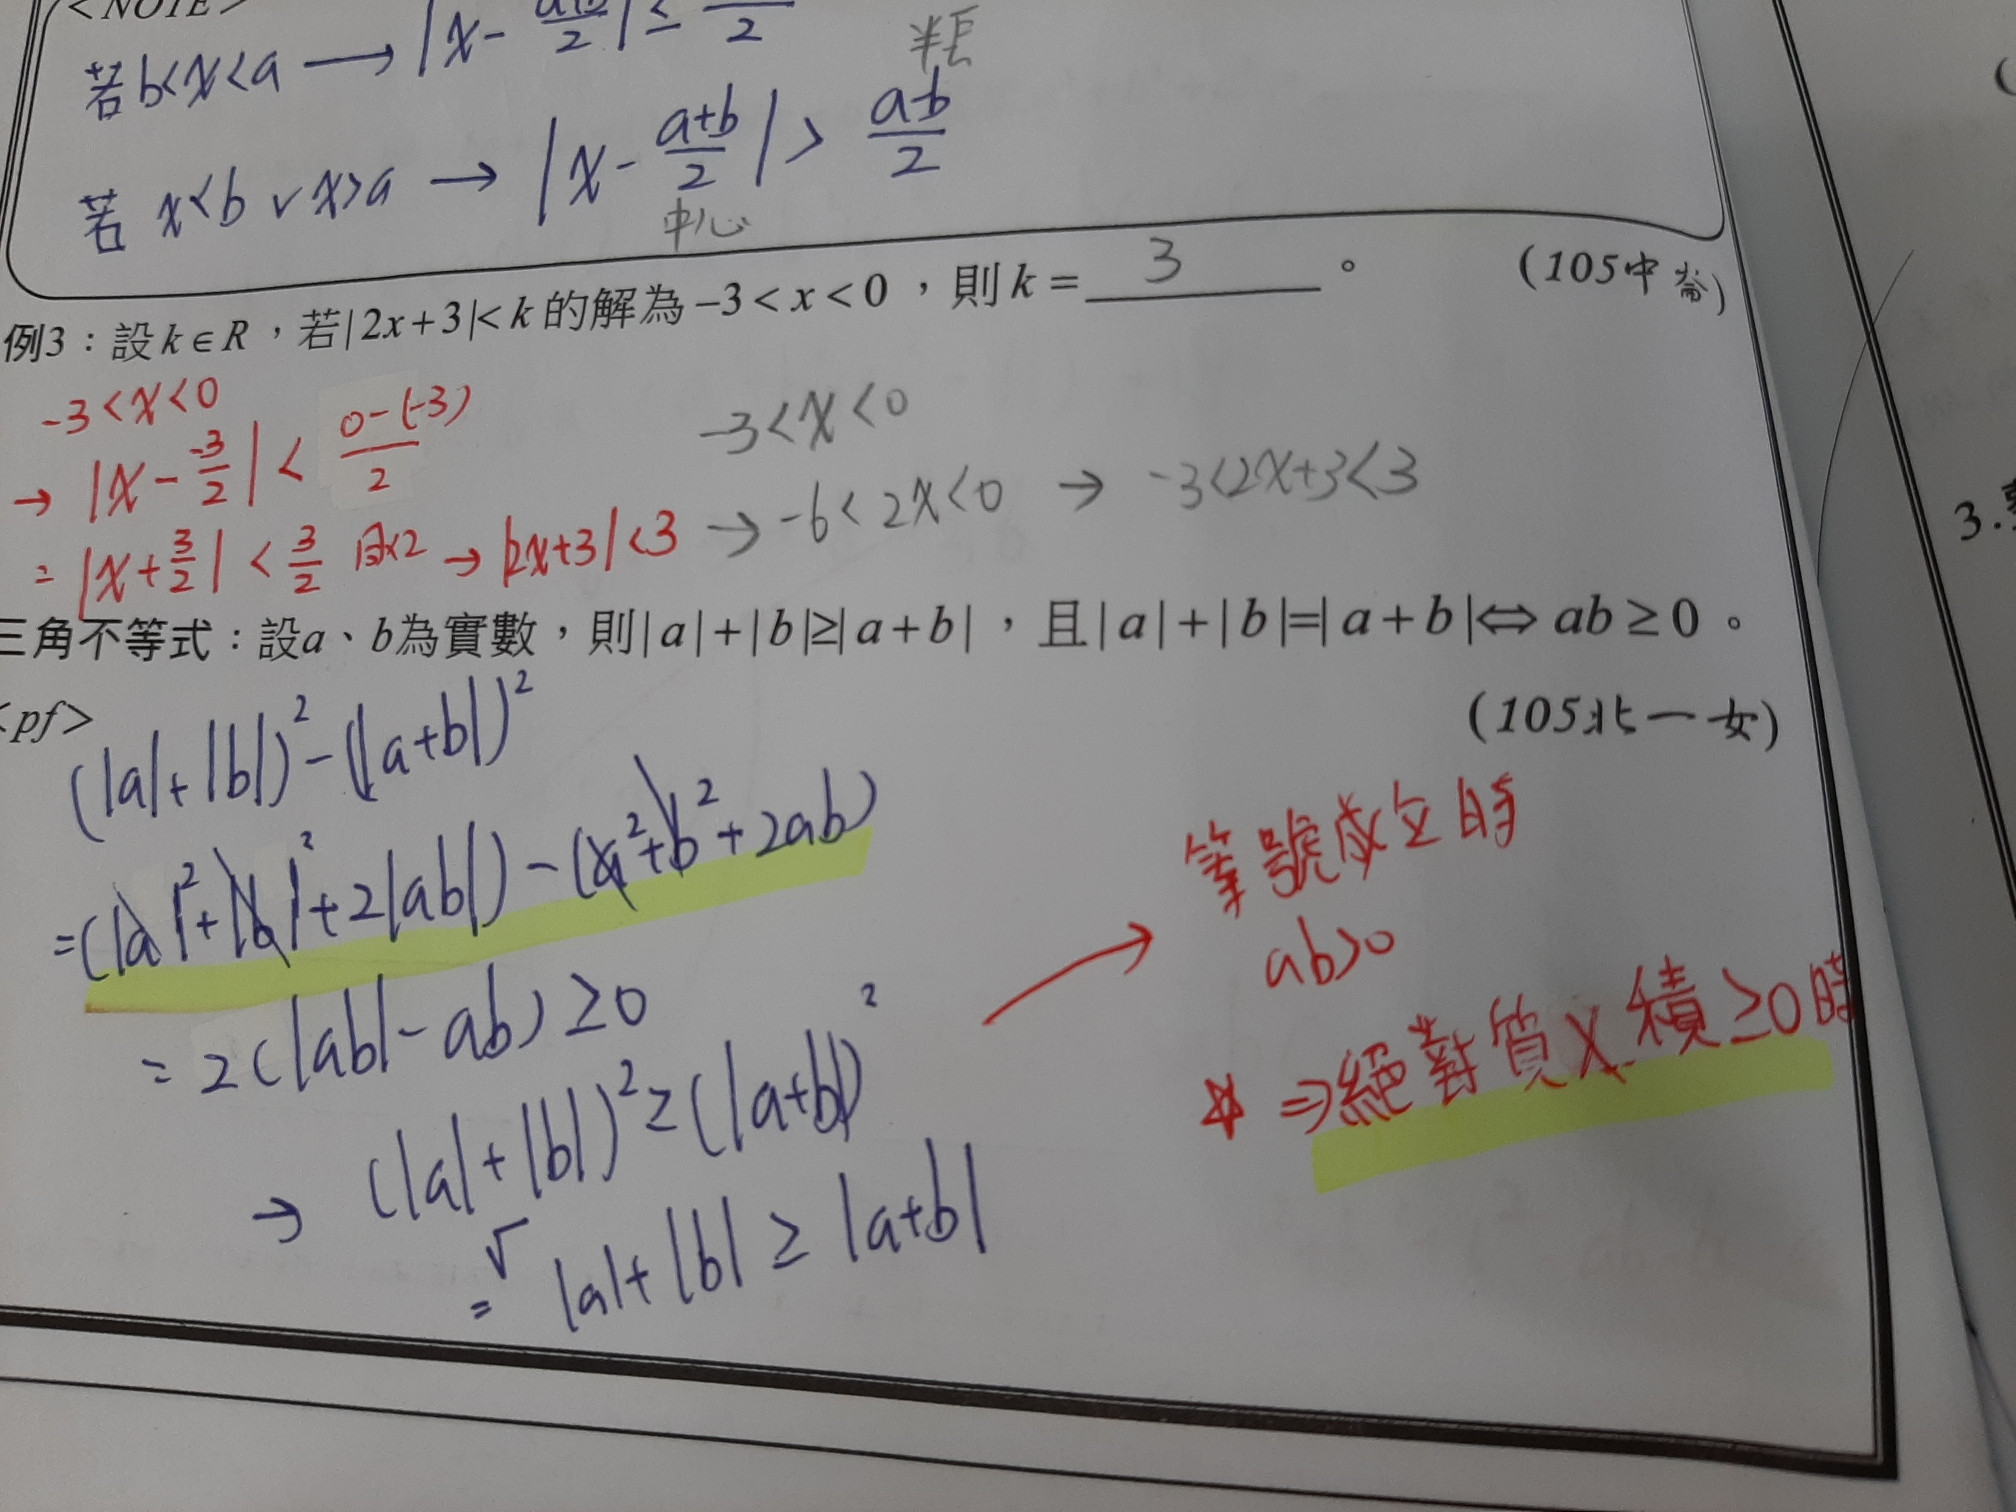 <NOTE>
若 b<x<a → |x - a+b/2| ≤ /2
半長
若 x<b ∨ x>a → |x - a+b/2| > a-b/2
中心
例3：設 k∈R，若 |2x+3|<k 的解為 -3<x<0，則 k = 3 。 (105中崙)
-3<x<0
→ |x - -3/2| < 0-(-3)/2
= |x + 3/2| < 3/2 同x2 → |2x+3|<3
-3<x<0
→ -6<2x<0 → -3<2x+3<3
三角不等式：設a、b為實數，則|a|+|b|≥|a+b|，且|a|+|b|=|a+b|⇔ab≥0。
<pf> (105北一女)
(|a|+|b|)²-(|a+b|)²
=(|a|²+|b|²+2|ab|)-(a²+b²+2ab)
= 2(|ab|-ab) ≥0
→ (|a|+|b|)² ≥ (|a+b|)²
√
= |a|+|b| ≥ |a+b|
→ 等號成立時
ab>0
☆ ⇒絕對質x積≥0時
3.